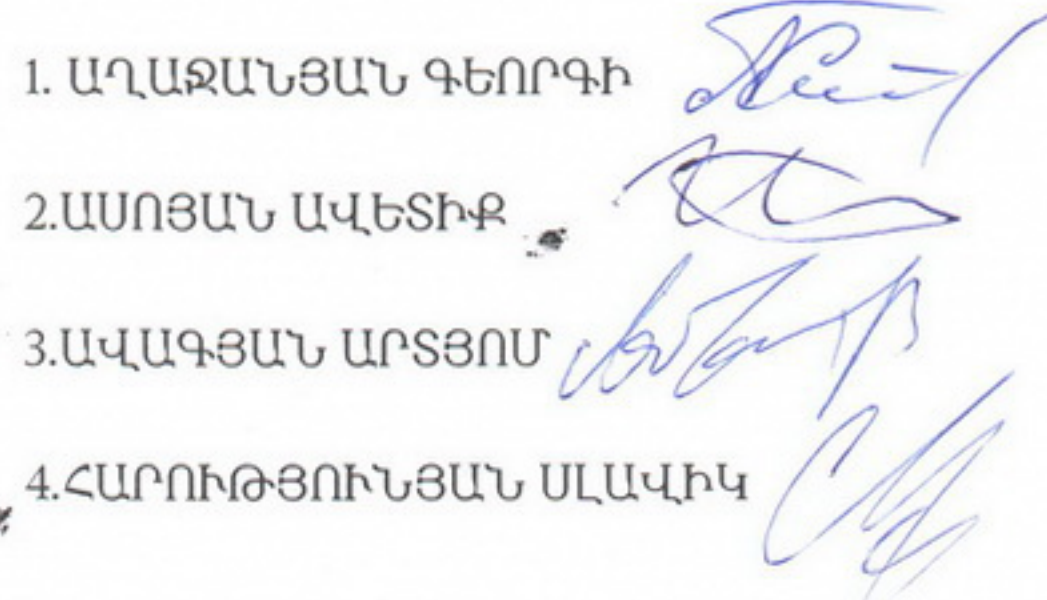 1. ԱՂԱՋԱՆՅԱՆ ԳԵՈՐԳԻ
2.ԱՍՈՅԱՆ ԱՎԵՏԻՔ
3.ԱՎԱԳՅԱՆ ԱՐՏՅՈՄ
4.ՀԱՐՈՒԹՅՈՒՆՅԱՆ ՍԼԱՎԻԿ